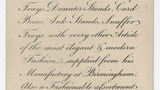 Trays, Decanter Stands, Card
Boxes, Ink Stands, Snuffer
Trays with every other Article
of the most elegant & modern
Fashion, supplied from his
Manufactory at Birmingham.
Also a Fashionable assortment